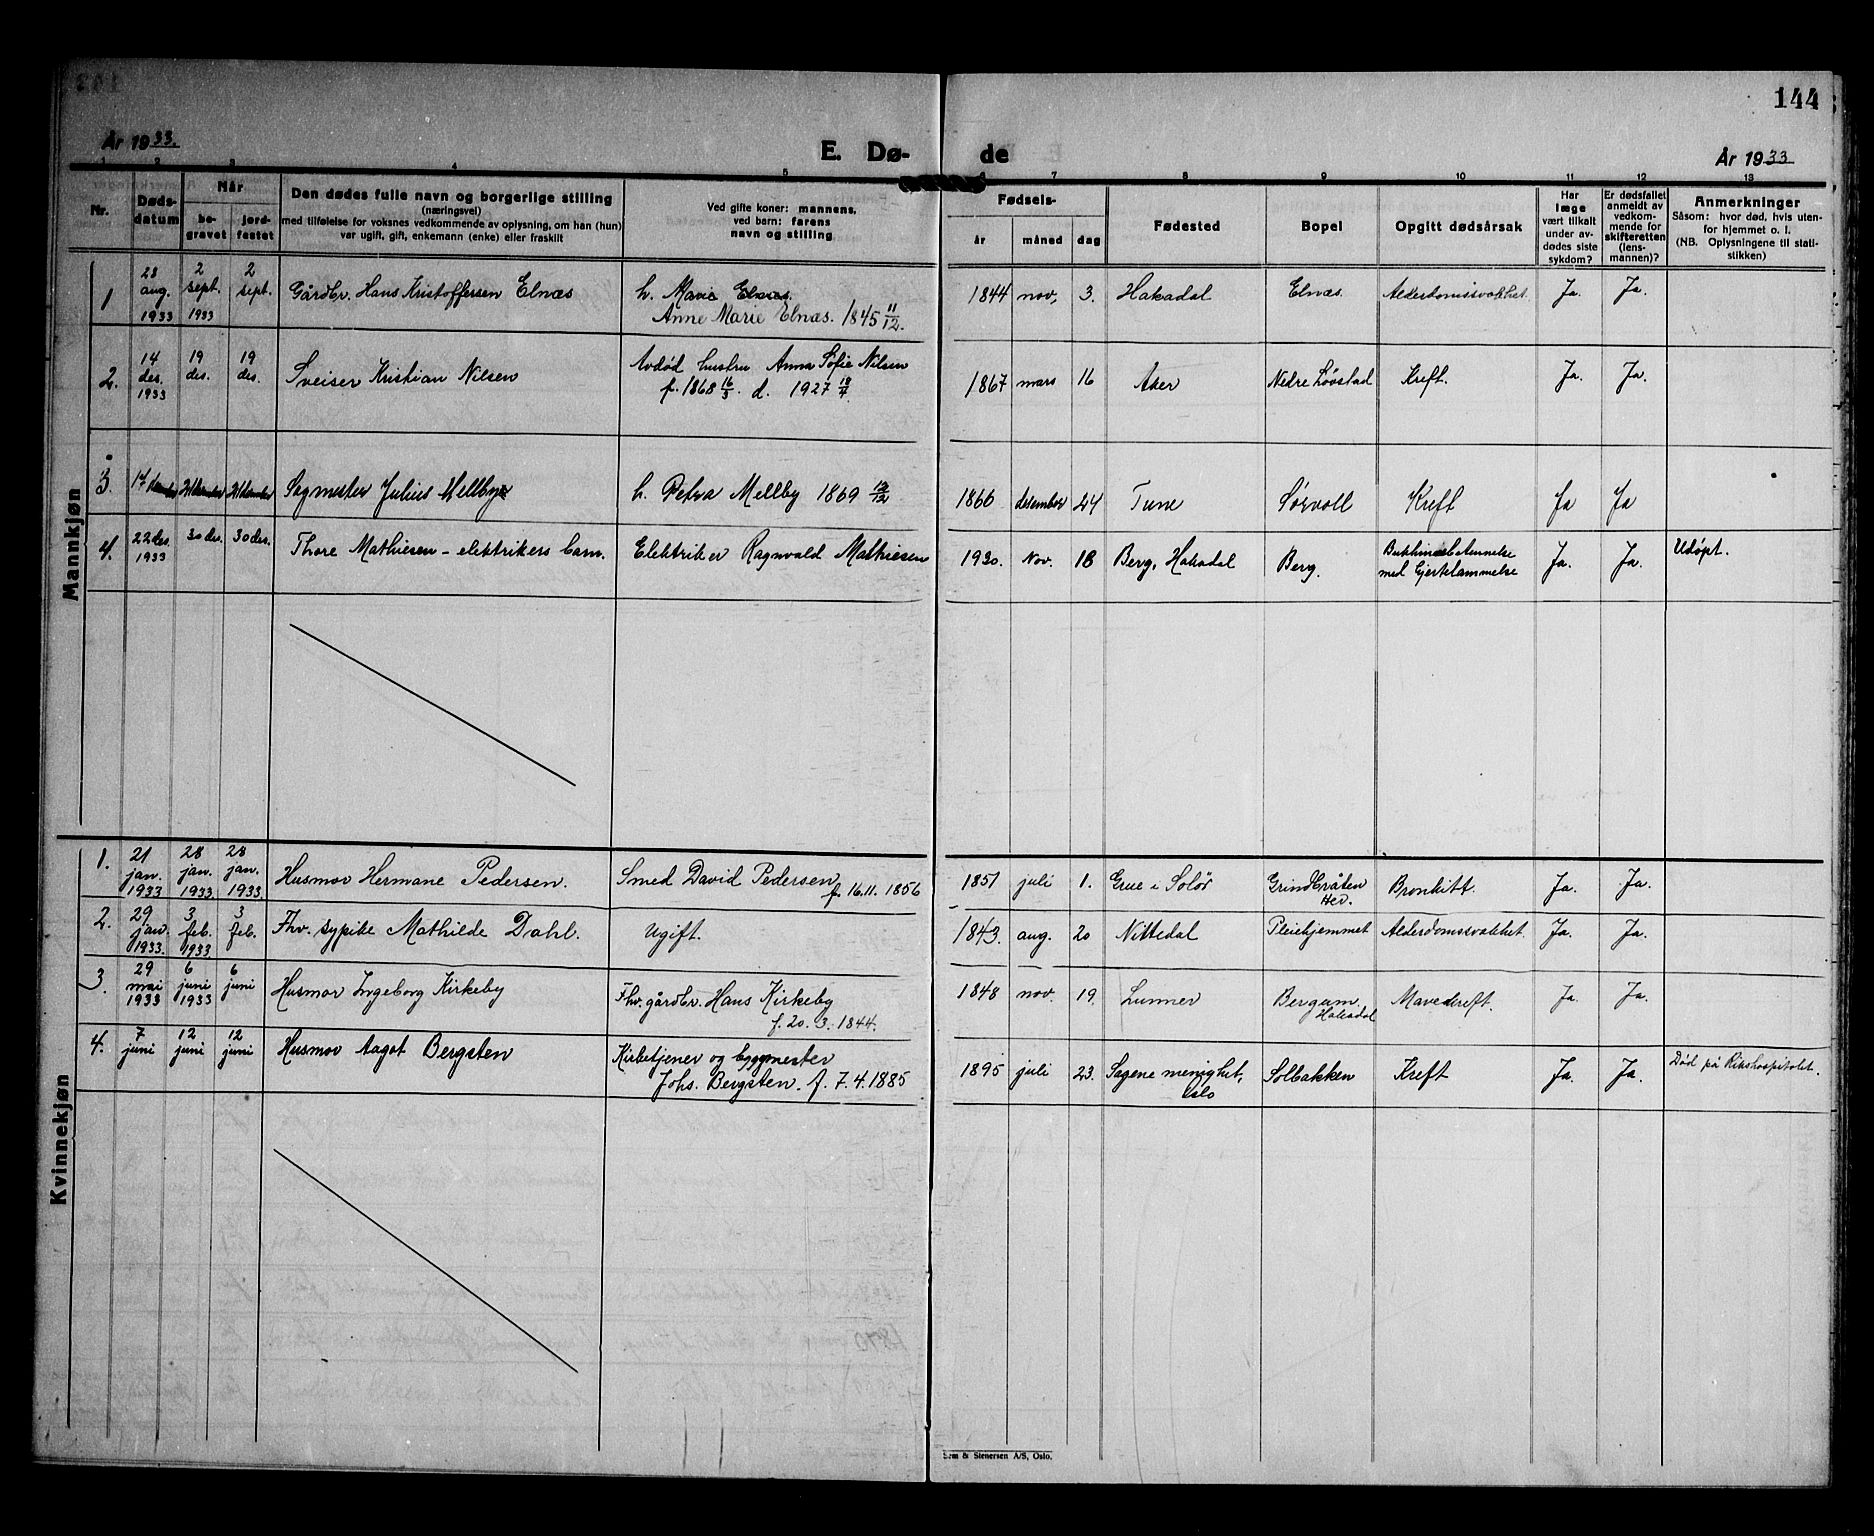 144
År 1933.
E. Dø-
de
År 1933
1 2 3 4 5 6 7 8 9 10 11 12 13
Nr.
Døds-
datum
Når
be-
gravet
jord-
festet
Den dødes fulle navn og borgerlige stilling
(næringsvei)
med tilføielse for voksnes vedkommende av oplysning, om han (hun)
var ugift, gift, enkemann (enke) eller fraskilt
Ved gifte koner: mannens,
ved barn: farens
navn og stilling
Fødsels-
år
måned
dag
Fødested
Bopel
Opgitt dødsårsak
Har
læge
vært tilkalt
under av-
dødes siste
sykdom?
Er dødsfallet
anmeldt av
vedkom-
mende for
skifteretten
(lens-
mannen)?
Anmerkninger
Såsom: hvor død, hvis uten-
for hjemmet o. l.
(NB. Oplysningene til stati-
stikken)
Mannkjøn
1 28 aug. 1933 2 sept. 1933 2 sept. Gårdbr. Hans Kristoffersen Elnæs h. Marie Elnæs.
Anne Marie Elnæs. 1845 11/12.
1844 nov. 3. Hakadal Elnæs. Alderdomssvakhet. Ja. Ja.
2. 14 des. 1933 19 des. 19 des. Sveiser Kristian Nilsen Avdød hustru Anna Sofie Nilsen
f. 1868 16/3. d. 1927 18/7.
1867 mars 16 Aker Nedre Løvstad Kreft. Ja. Ja.
3. 14 Sagmester Julius Mellbye h. Petra Mellby 1869 12/12
1866 desember 24 Tune Sørvoll Kreft Ja Ja
4. 22 des. 1933 30 des. 30 des. Thore Mathiesen - elektrikers barn. Elektriker Ragnvald Mathiesen
1930. Nov. 18 Berg, Hakadal Berg. Bukhinnebetennelse
med hjertelammelse Ja. Ja. Udøpt.
Kvinnekjøn
1. 21 jan. 1933 28 jan. 1933. 28 jan. 1933. Husmor Hermane Pedersen. Smed David Pedersen
f. 16.11. 1856
1851 juli 1. Grue i Solør Grindbråten
Hev.
Bronkitt. Ja. Ja.
2. 29 jan. 1933. 3 feb. 1933 3 feb. Fhv. sypike Mathilde Dahl. Ugift.
1843. aug. 20 Nittedal Pleiehjemmet Alderdomssvakhet. Ja. Ja.
3. 29 mai 1933 6 juni 1933 6 juni Husmor Ingeborg Kirkeby Fhv. gårdbr. Hans Kirkeby
f. 20. 3. 1844.
1848 nov. 19. Lunner Bergum.
Hakadal
Mavekreft. Ja. Ja.
4. 7 juni 12 juni 12 juni Husmor Aagot Bergsten Kirketjener og byggmester
Johs. Bergsten. f. 7.4.1885
1895 juli 23. Sagene menighet,
Oslo
Solbakken Kreft Ja. Ja. Død på Rikshospitalet.
Sem & Stenersen A/S, Oslo.